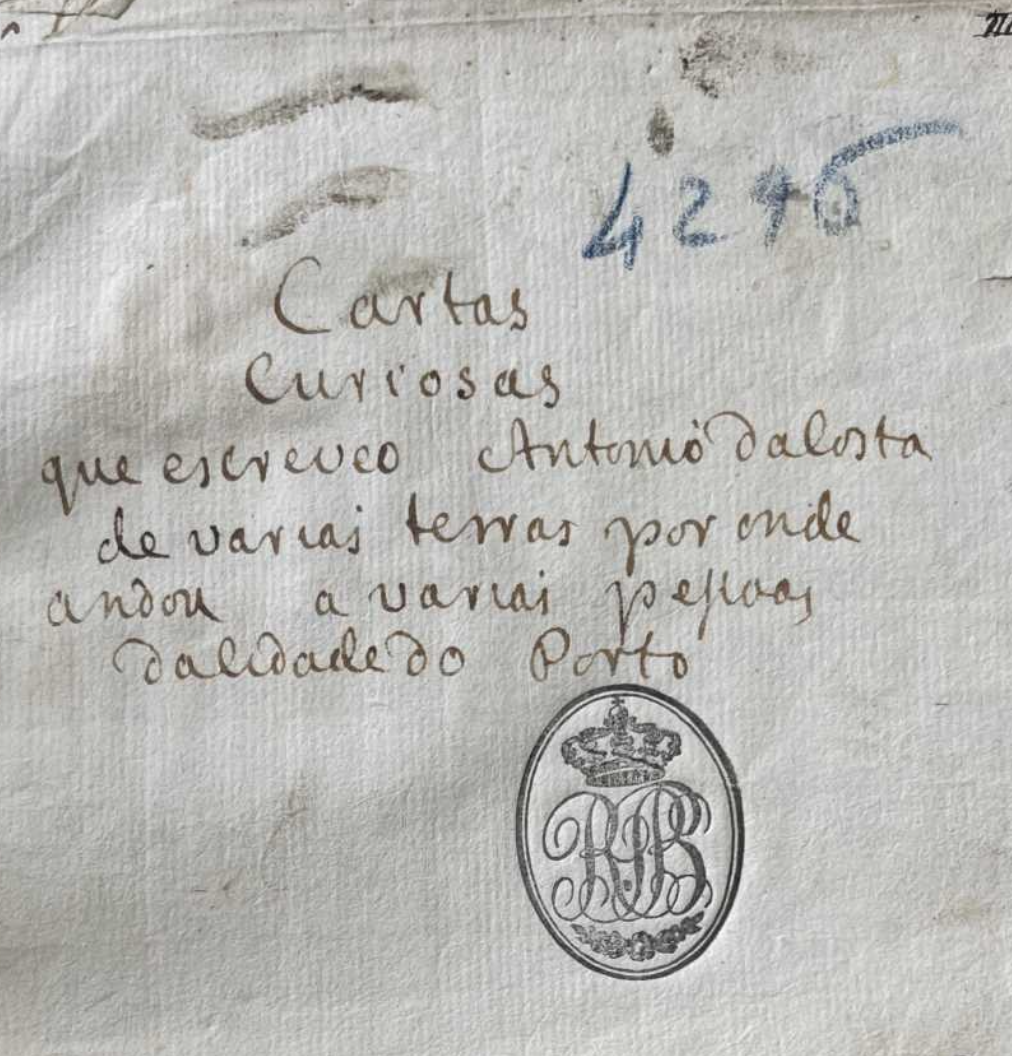 4296
Cartas
Curiosas
que escreveo Antonio daCosta
de varias terras por onde
andou a varias pessoas
daCidade do Porto
RPB